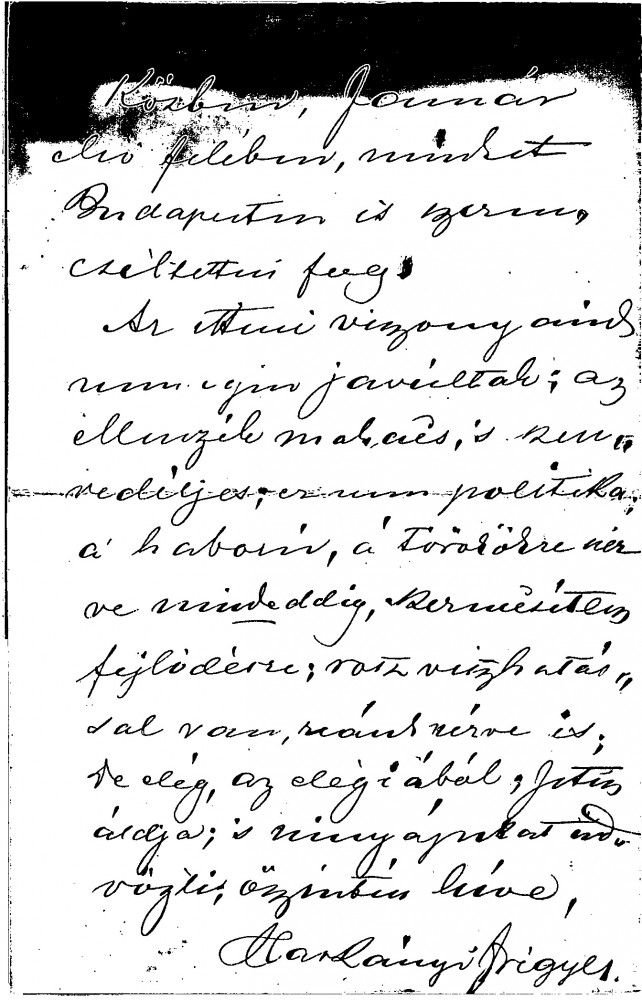 Közben, Január
első felében, minket
Budapesten is szeren,
cséltetni fog.
Az itteni viszonyaink
nem igen javúltak; az
ellenzék makacs, s szen„
vedélyes; ez nem politika;
á ború, á törökökre néz
ve mindeddig, kerencsétlen
fejlődésre; rosz viszhatás„
sal van, reánk nézve is;
de elég, az elégiából; Isten
áldja; 's ninyájukat üd„
vözli; őszintén híve,
Harkányi Frigyes.